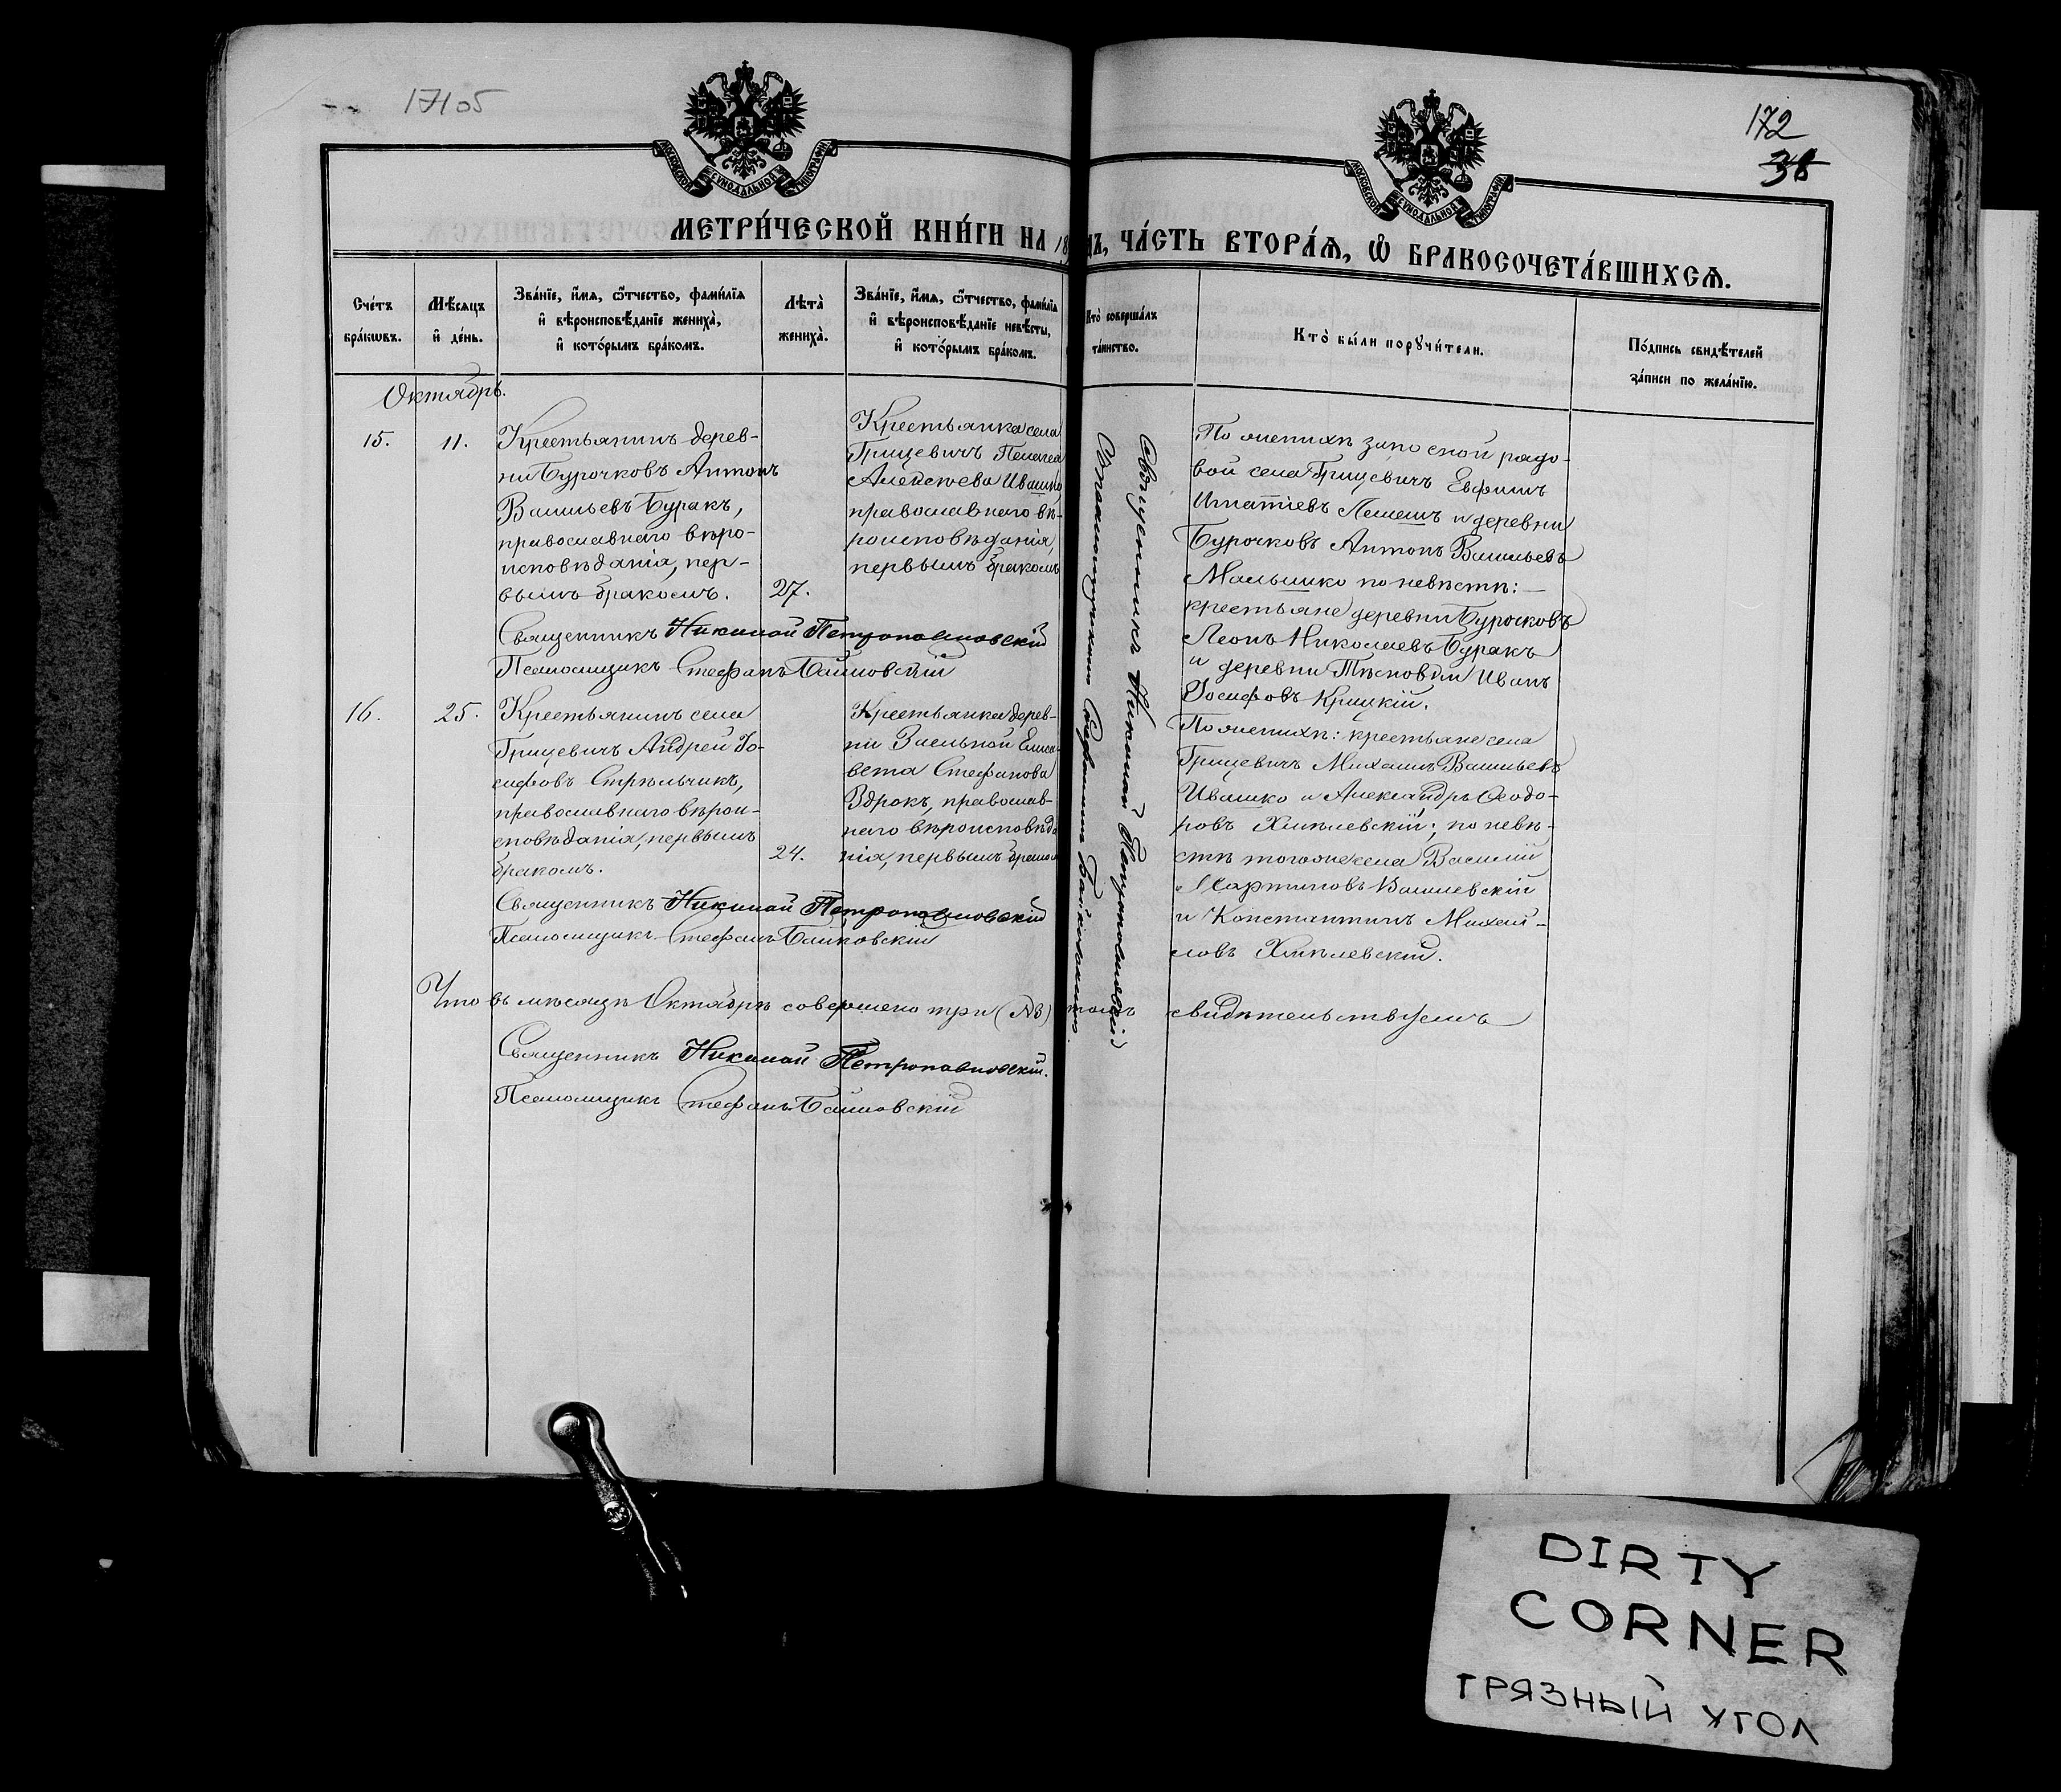 17105
172
38
МОСКОВСКОЙ СѴНОДАЛЬНОЙ ТИПОГРАФІИ
МОСКОВСКОЙ СѴНОДАЛЬНОЙ ТИПОГРАФІИ
МЕТРИ́ЧЕСКОЙ КНИ́ГИ НА 18
ДЪ, ЧА́СТЬ ВТОРА́Ѧ, Ѽ БРАКОСОЧЕТА́ВШИХСѦ.
Сче́тъ
бра́кѡвъ.
Мѣ́сяцъ
и҆ де́нь.
Зва́нїе, и҆́мѧ, ѻ҆́тчество, фами́лїѧ
и҆ вѣроисповѣ́данїе жениха̀,
и҆ кото́рымъ бра́комъ.
Лѣта̀
жениха̀.
Зва́нїе, и҆́мѧ, ѻ҆́тчество, фами́лїѧ
и҆ вѣроисповѣ́данїе невѣ́сты,
и҆ кото́рымъ бра́комъ.
Кто̀ соверша́лъ
та́инство.
Кто̀ бы́ли порꙋчи́тели.
По́дпись свидѣ́телей
за́писи по жела́нїю.
Октябрь.
15.
11.
Крестьянинъ дерев-
ни Бурочковъ Антонъ
Васильевъ Буракъ,
православнаго вѣро-
исповѣданія, пер-
вымъ бракомъ.
27.
Крестьянка села
Грицевичъ Пелагея
Алексѣева Ивашко
православнаго вѣ-
роисповѣданія,
первымъ бракомъ
Священникъ Николай Петропавловскій
Псаломщикъ Стефанъ Байковскій
По женихѣ запасной рядо-
вой села Грицевичъ Евфимъ
Игнатіевъ Лемешъ и деревни
Бурочковъ Антонъ Васильевъ
Малышко по невѣстѣ: —
крестьяне деревни Бурочковъ
Леонъ Николаевъ Буракъ
и деревни Иванъ
Іосифовъ Крицкій.
16.
25.
Крестьянинъ села
Грицевичъ Андрей Іо-
сифовъ Стрѣльчикъ,
православнаго вѣрои-
сповѣданія, первымъ
бракомъ.
24.
Крестьянка дерев-
ни Заельной Елиса-
вета Стефанова
Здрокъ, православ-
наго вѣроисповѣда
нія, первымъ браком
Священникъ Николай Петропавловскій
Псаломщикъ Стефанъ Байковскій
По женихѣ: крестьяне села
Грицевичъ Михаилъ Васильевъ
Ивашко и Александръ Ѳеодо-
ровъ Хмѣлевскій; по невѣ-
стѣ тогоже села Василій
Мартиновъ Василевскій
и Константинъ Михай-
ловъ Хмѣлевскій.
Священникъ Николай Петропавловскій
съ псаломщикомъ Стефаномъ Байковскимъ.
Что въ мѣсяцѣ Октябрѣ совершено три (№3) томъ свидѣтельствуемъ
Священникъ Николай Петропавловскій.
Псаломщикъ Стефанъ Байковскій
DIRTY
CORNER
ГРЯЗНЫЙ УГОЛ